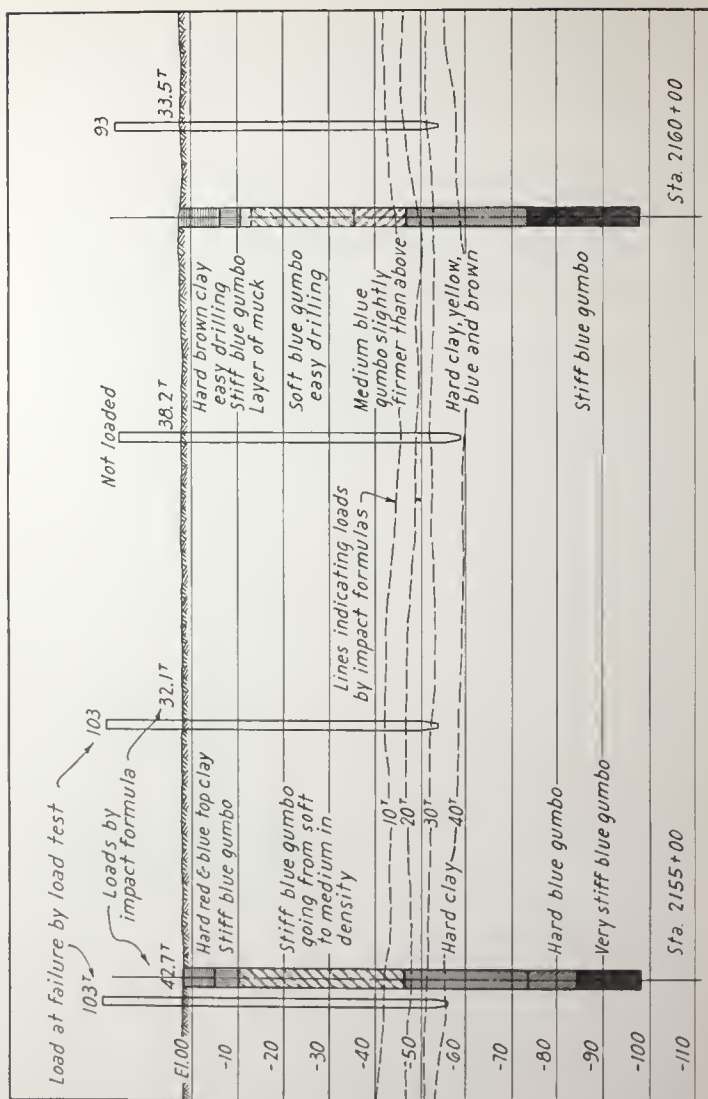 Load at failure by load test
103ᵀ
103
Not loaded
93
Loads by
impact formula
42.7ᵀ
32.1ᵀ
38.2ᵀ
33.5ᵀ
El.00
-10
-20
-30
-40
-50
-60
-70
-80
-90
-100
-110
Hard red & blue top clay
Stiff blue gumbo
Stiff blue gumbo
going from soft
to medium in
density
Hard clay
Hard blue gumbo
Very stiff blue gumbo
Sta. 2155+00
10ᵀ
20ᵀ
30ᵀ
40ᵀ
Lines indicating loads
by impact formulas
Hard brown clay
easy drilling
Stiff blue gumbo
Layer of muck
Soft blue gumbo
easy drilling
Medium blue
gumbo slightly
firmer than above
Hard clay, yellow,
blue and brown
Stiff blue gumbo
Sta. 2160+00